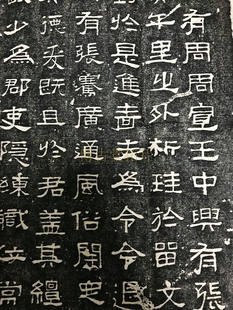 有周周宣王中興有張
里之外析珪於留文
對於是進嗇夫為令令退
有張騫廣通風俗開定
德爰既且於君蓋其繵
少為郡吏隱練職位常